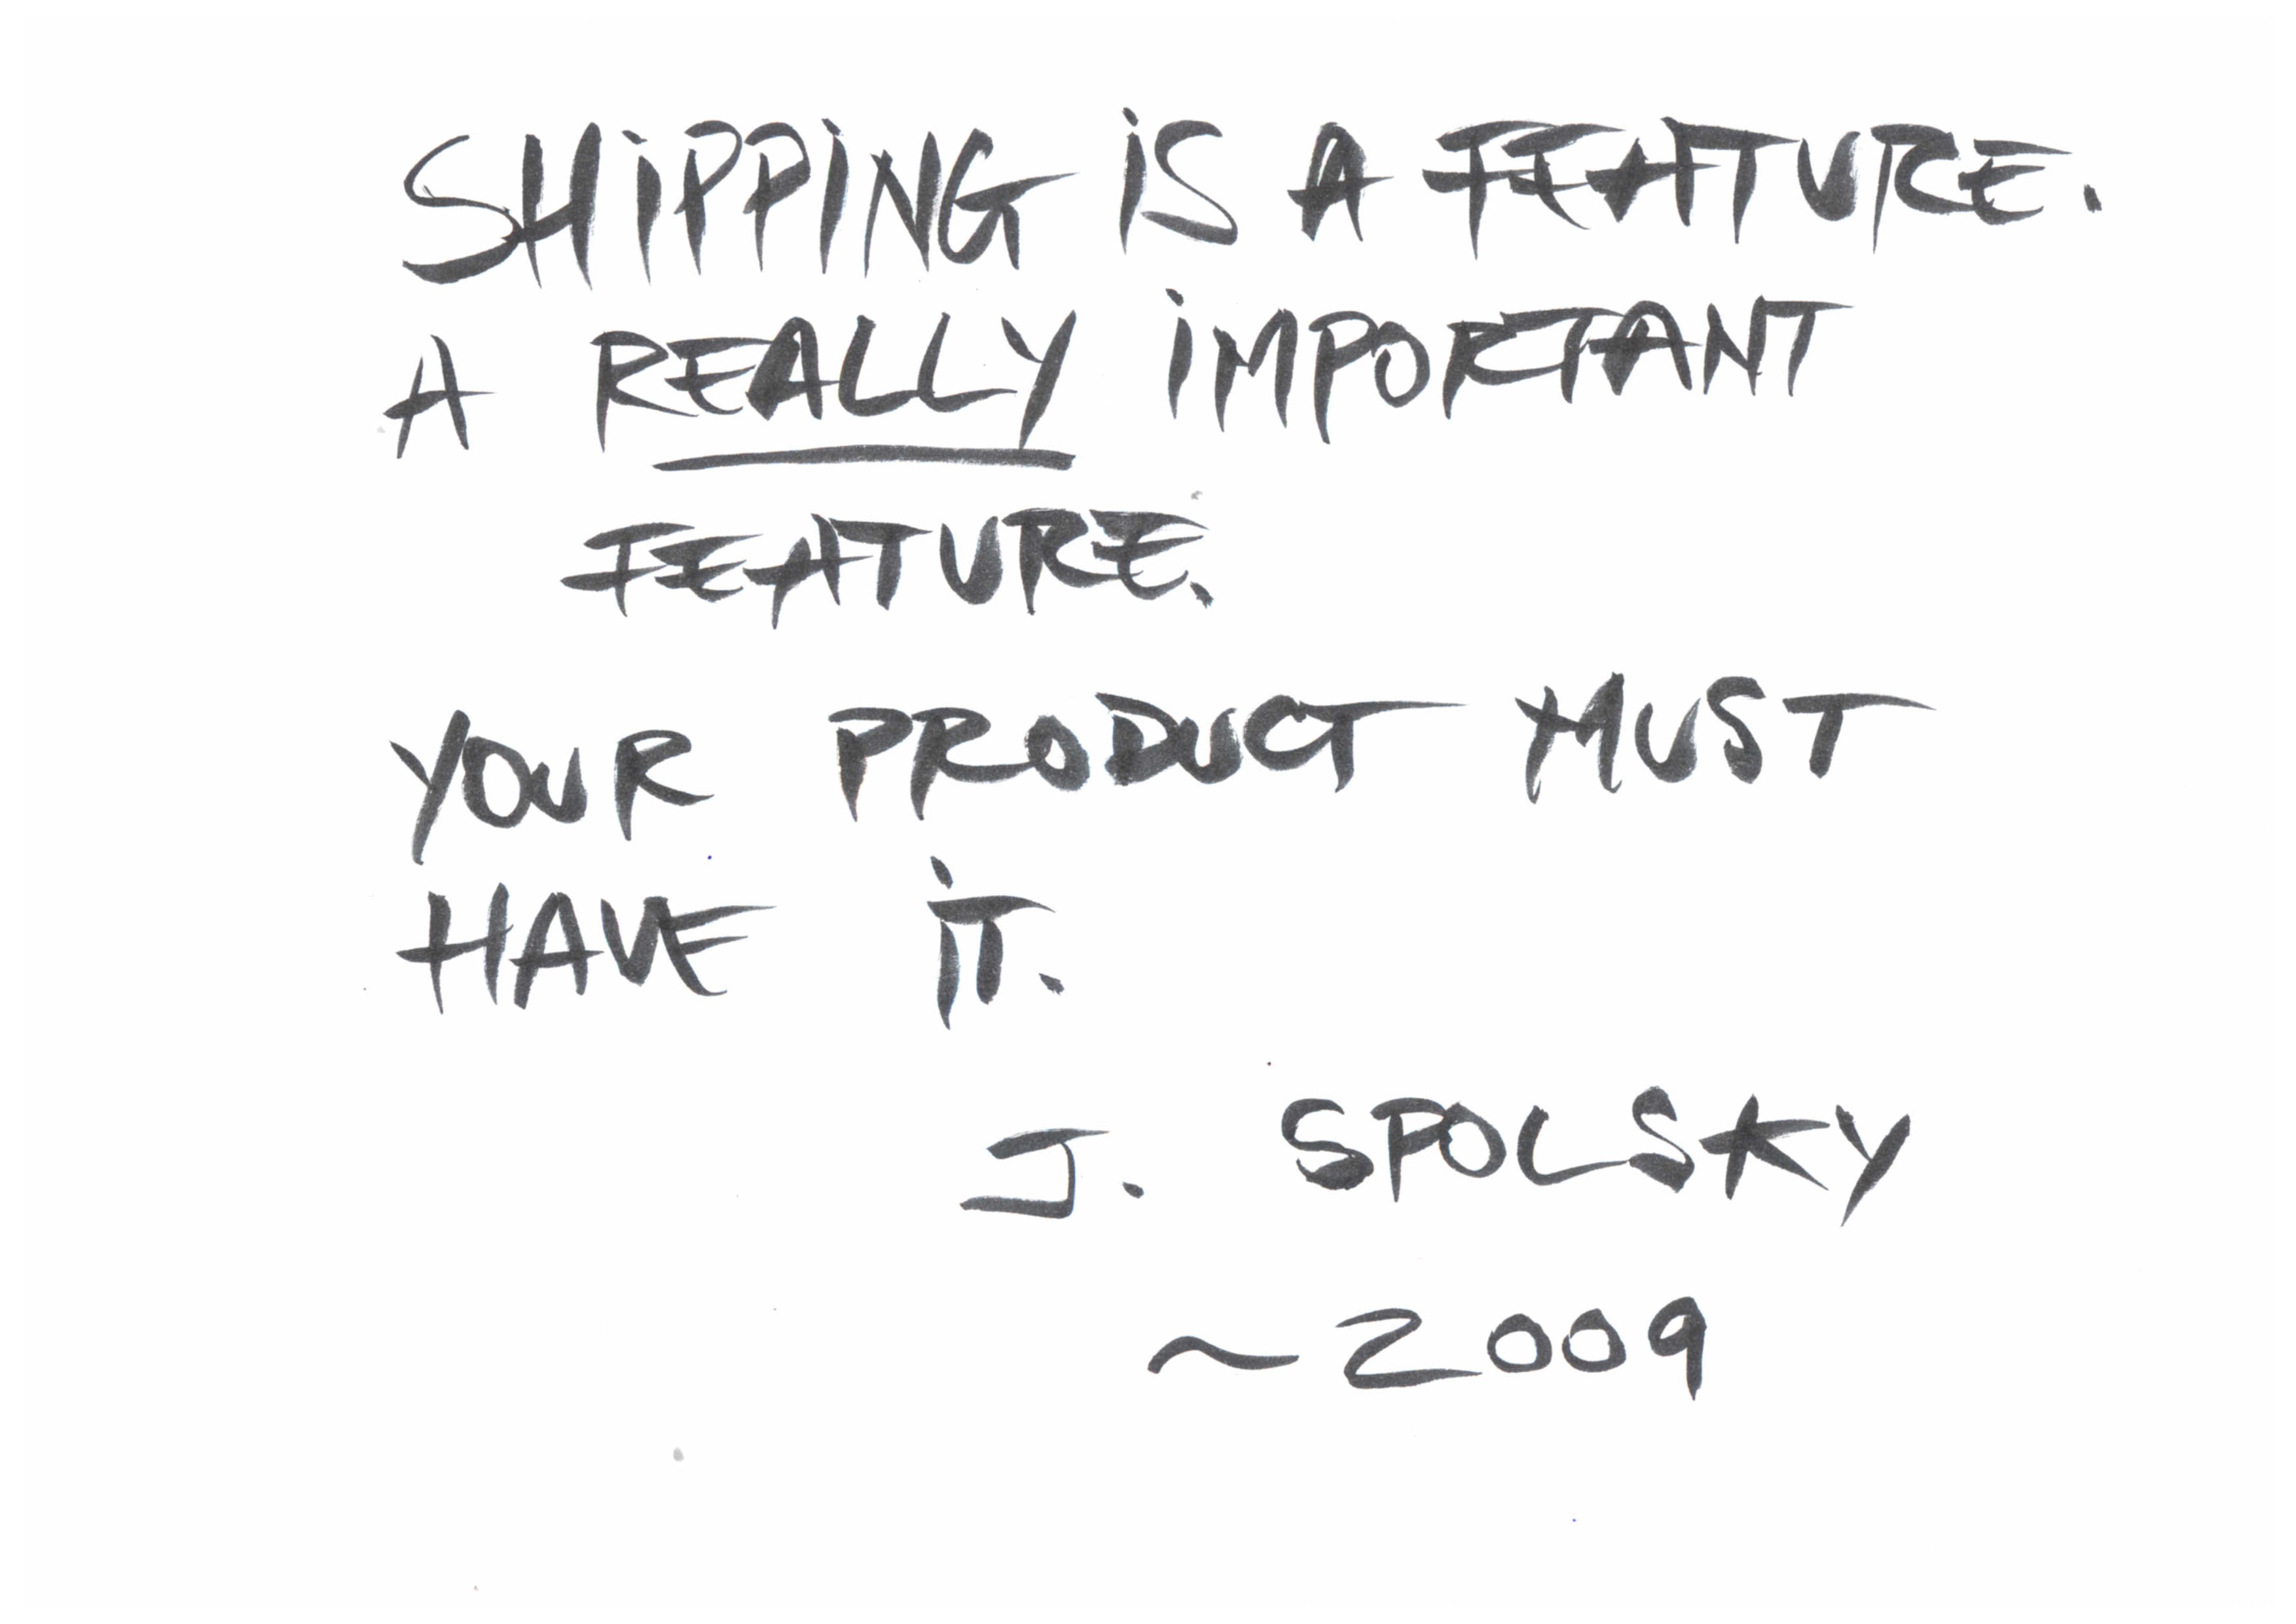 SHiPPiNG iS A FEATURE.
A REALLY iMPORTANT
FEATURE.
YOUR PRODUCT MUST
HAVE iT.
J. SPOLSKY
~2009